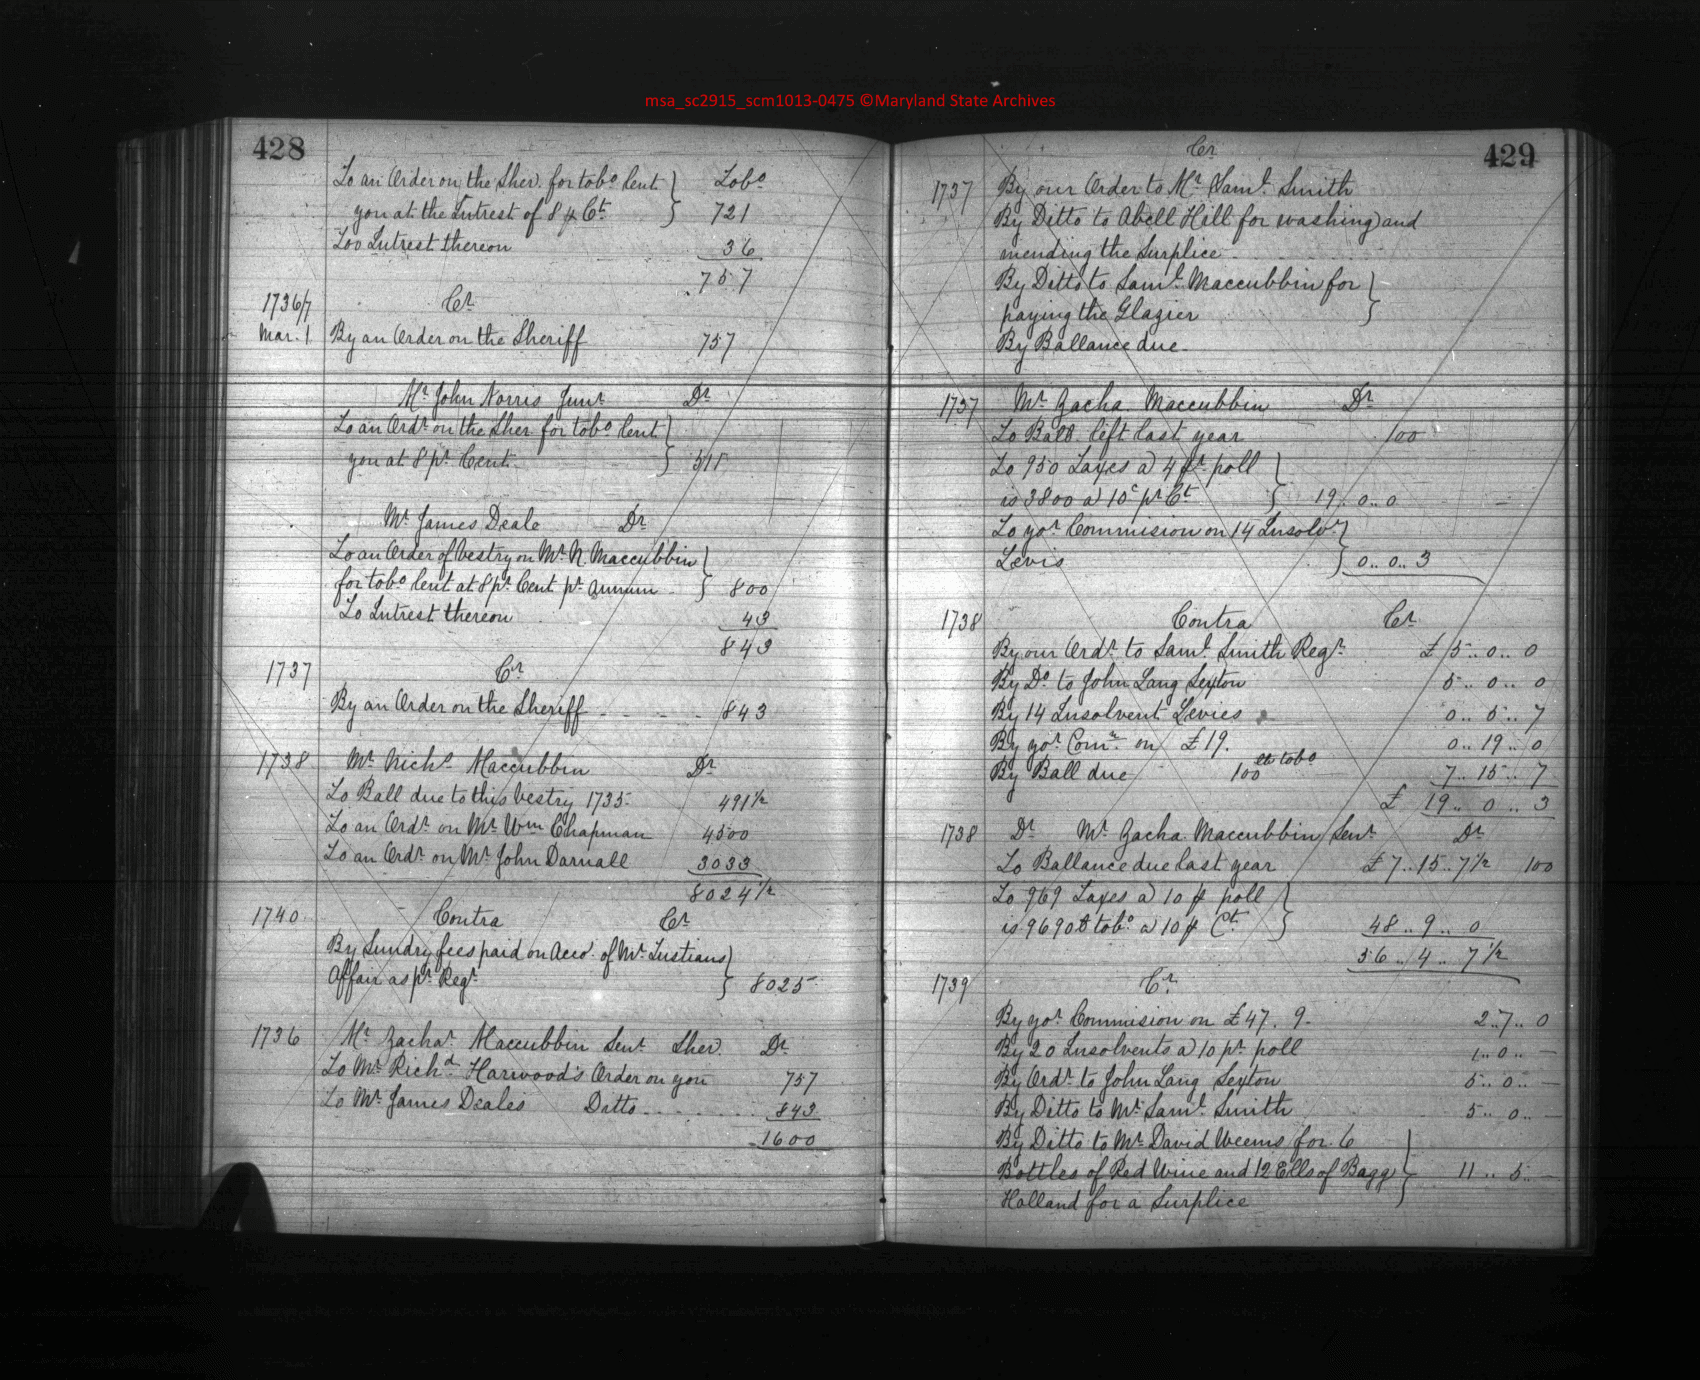 msa_sc2915_scm1013-0475 ©Maryland State Archives
428
To an Order on the Sher. for tobo lent } Tobo
you at the Intrest of 8 p Ct. } 721
Too Intrest thereon 36
757
1736/7 Cr
Mar. 1 By an Order on the Sheriff 757
Mr John Norris Junr Dr
To an Ordr on the Sher for tobo lent }
you at 8 pr Cent. } 511
Mr James Deale Dr
To an Order of Vestry on Mr N. Maccubbin }
for tobo lent at 8 pr Cent pr annum } 800
To Intrest thereon 43
843
1737 Cr
By an Order on the Sheriff - - - - 843
1738 Mr Nicho Maccubbin Dr
To Ball due to this Vestry 1735 491 1/2
To an Ordr on Mr Wm Chapman 4500
To an Ordr on Mr John Darnall 3033
8024 1/2
1740 Contra Cr
By Sundry fees paid on Acco. of Mr Tustians }
Affair as pr Regr } 8025
1736 Mr Zachar Maccubbin Senr Sher. Dr
To Mr Richd Harwood's Order on you 757
To Mr James Deales Datto 843
1600
429
Cr
1737 By our Order to Mr Saml Smith
By Ditto to Abell Hill for washing and
mending the Surplice
By Ditto to Saml Maccubbin for }
paying the Glazier }
By Ballance due
1737 Mr Zacha Maccubbin Dr
To Ball. left last year 100
To 950 Taxes a 4 pr poll }
is 3800 a 10c pr Ct } 19.. 0.. 0
To yor Commision on 14 Insolvt }
Levis } 0.. 0.. 3
1738 Contra Cr
By our Ordr to Saml Smith Regr £ 5.. 0.. 0
By Do to John Lang Sexton 5.. 0.. 0
By 14 Insolvent Levies 0.. 5.. 7
By yor Comn on £ 19. 0.. 19.. 0
By Ball due 100 lb tobo 7.. 15.. 7
£ 19.. 0.. 3
1738 Dr Mr Zacha Maccubbin Senr Dr
To Ballance due last year £7.. 15.. 7 1/2 100
To 969 Taxes a 10 p poll }
is 9690 lb tobo a 10 p Ct } 48.. 9.. 0
56.. 4.. 7 1/2
1739 Cr
By yor Commision on £47. 9. 2.. 7.. 0
By 20 Insolvents a 10 pr poll 1.. 0.. —
By Ordr to John Lang Sexton 5.. 0.. —
By Ditto to Mr Saml Smith 5.. 0.. —
By Ditto to Mr David Weems for 6 }
Bottles of Red Wine and 12 Ells of Bagg } 11.. 5.. —
Holland for a Surplice }